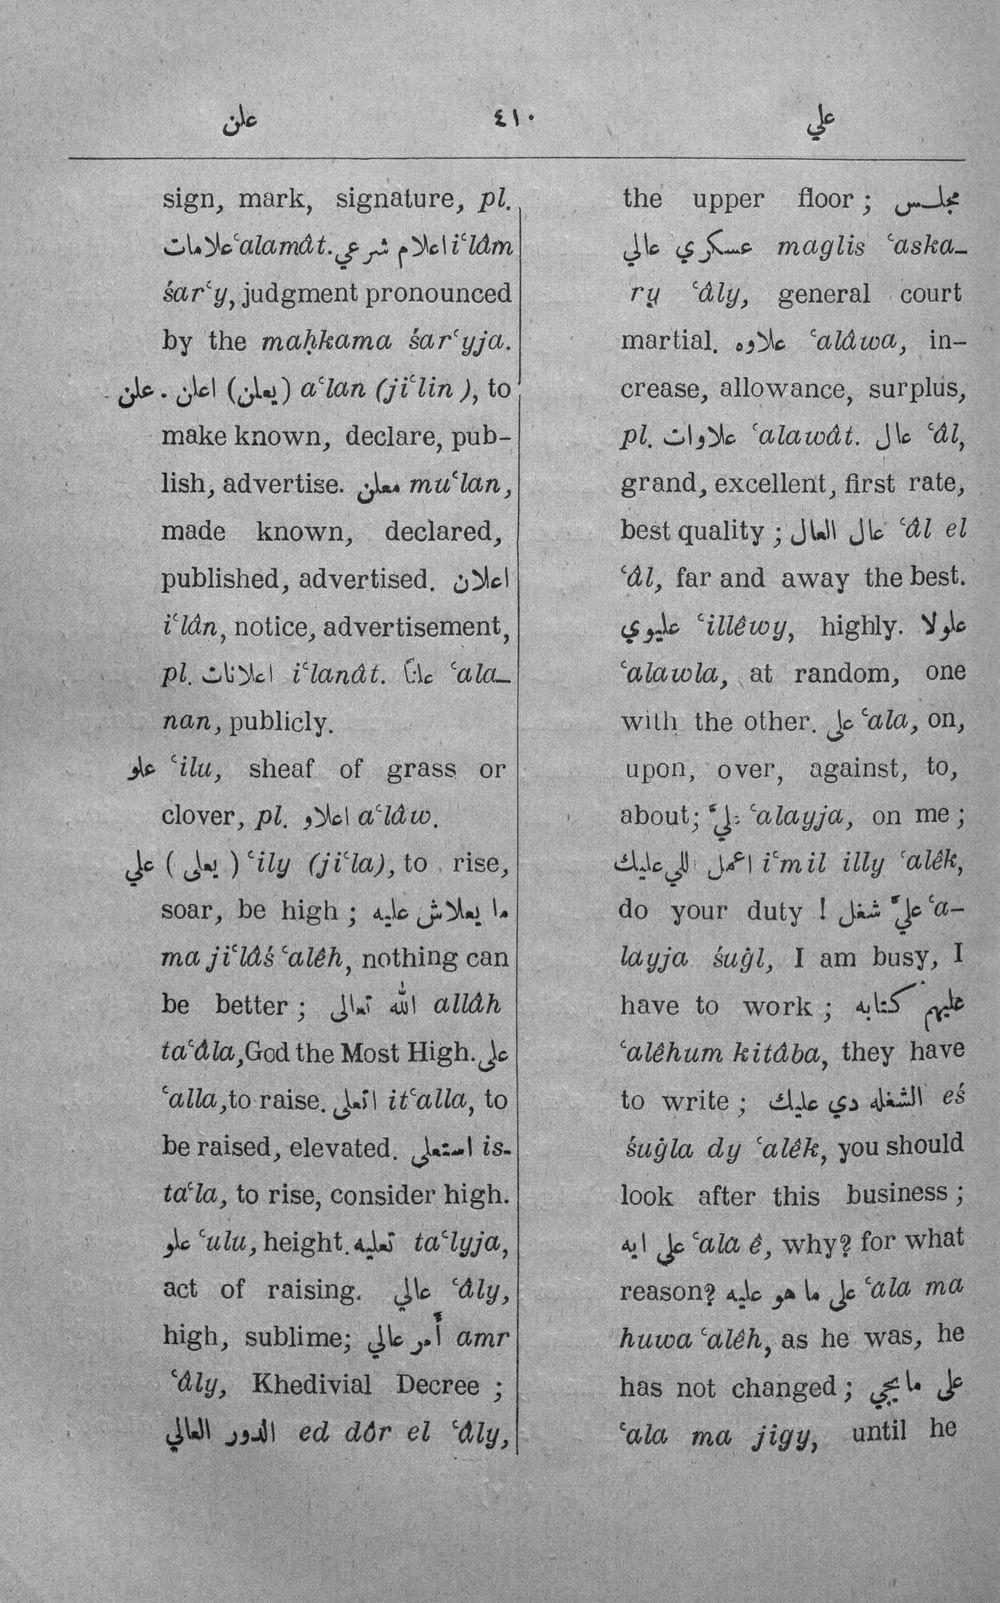 علن ٤١٠ علي
sign, mark, signature, pl.
علامات ʿalamât. اعلام شرعي iʿlâm
śarʿy, judgment pronounced
by the maḥkama śarʿyja.
علن . اعلن (يعلن) aʿlan (jiʿlin), to
make known, declare, pub-
lish, advertise. معلن muʿlan,
made known, declared,
published, advertised. اعلان
iʿlân, notice, advertisement,
pl. اعلانات iʿlanât. علناً ʿala-
nan, publicly.
علو ʿilu, sheaf of grass or
clover, pl. اعلاو aʿlâw.
علي ( يعلى ) ʿily (jiʿla), to rise,
soar, be high ; ما يعلاش عليه
ma jiʿlâś ʿalêh, nothing can
be better ; الله تعالى allâh
taʿâla, God the Most High. على
ʿalla, to raise. اتعلى itʿalla, to
be raised, elevated. استعلى is-
taʿla, to rise, consider high.
علو ʿulu, height. تعليه taʿlyja,
act of raising. عالي ʿâly,
high, sublime; أمر عالي amr
ʿâly, Khedivial Decree ;
الدور العالي ed dôr el ʿâly,
the upper floor ; مجلس
عسكري عالي maglis ʿaska-
ry ʿâly, general court
martial. علاوه ʿalâwa, in-
crease, allowance, surplus,
pl. علاوات ʿalawât. عال ʿâl,
grand, excellent, first rate,
best quality ; عال العال ʿâl el
ʿâl, far and away the best.
عليوي ʿillêwy, highly. علولا
ʿalawla, at random, one
with the other. على ʿala, on,
upon, over, against, to,
about; عليَّ ʿalayja, on me ;
اعمل اللي عليك iʿmil illy ʿalêk,
do your duty ! عليَّ شغل ʿa-
layja śuġl, I am busy, I
have to work ; عليهم كتابه
ʿalêhum kitâba, they have
to write ; الشغله دي عليك eś
śuġla dy ʿalêk, you should
look after this business ;
على ايه ʿala ê, why? for what
reason? على ما هو عليه ʿala ma
huwa ʿalêh, as he was, he
has not changed ; على ما يجي
ʿala ma jigy, until he